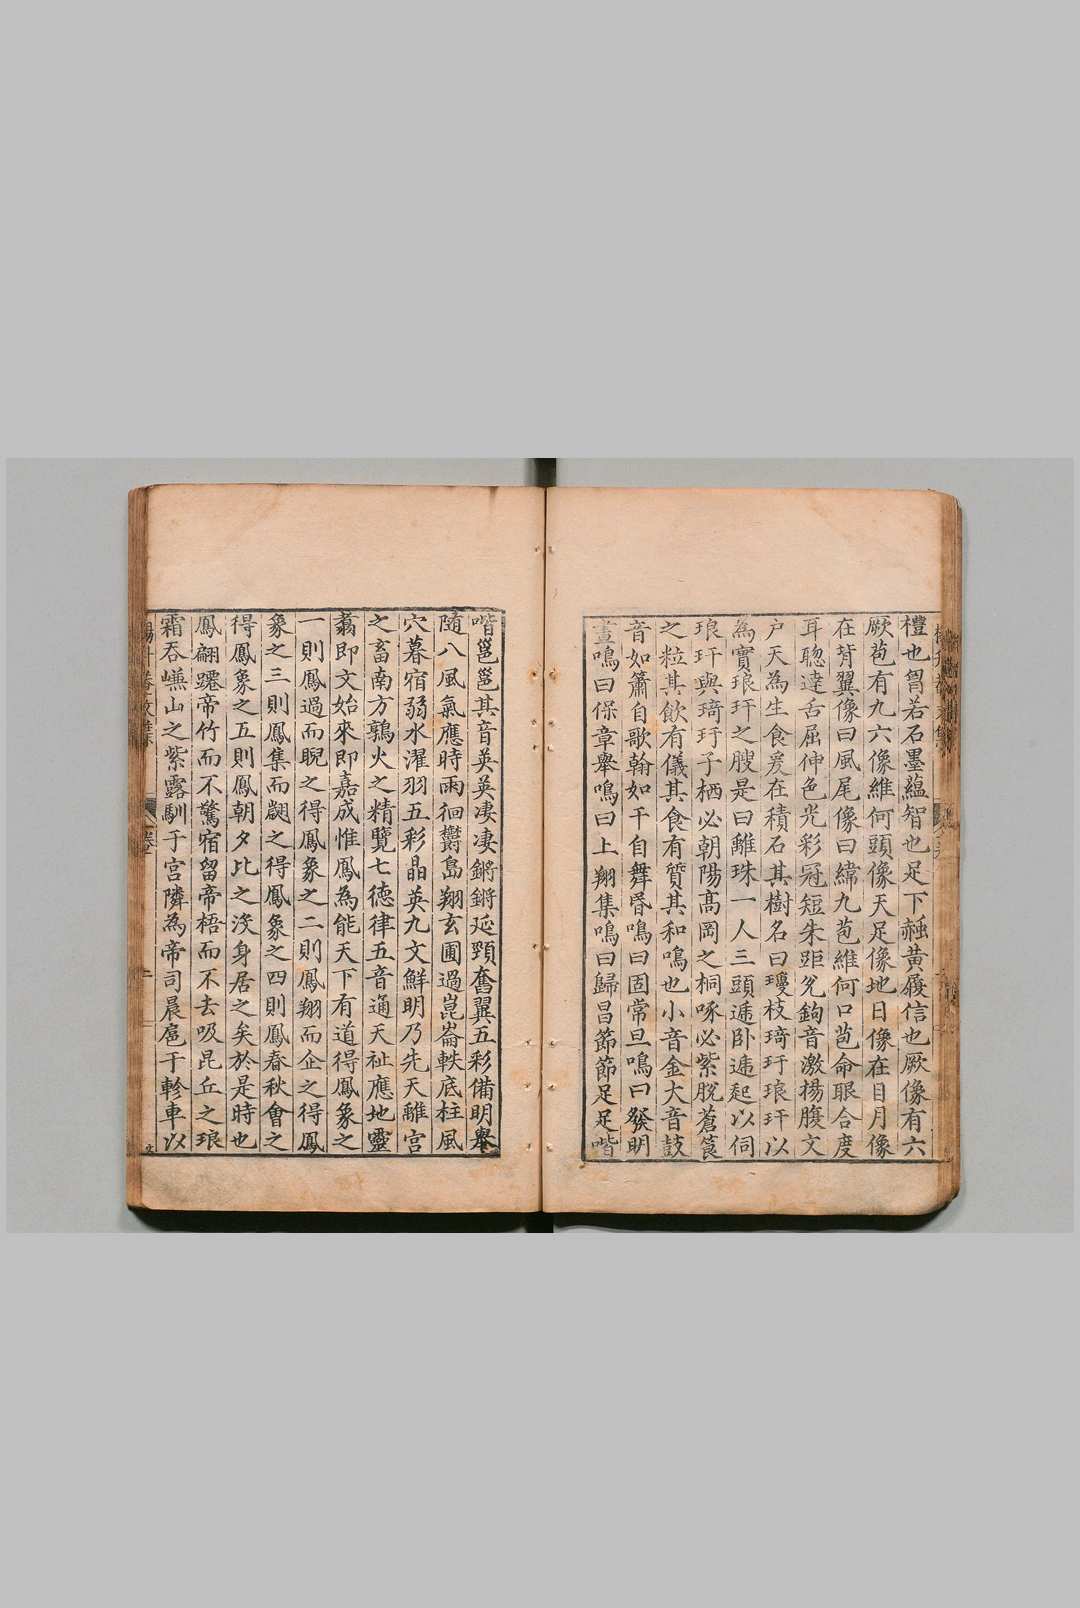 禮也胷若石墨蘊智也足下赩黄履信也厥像有六
厥苞有九六像維何頭像天足像地目像在日月像
在背翼像曰風尾像曰緯九苞維何口苞命眼合度
耳聰達舌屈伸色光彩冠短朱距兊鉤音激揚腹文
户天為生食爰在積石其樹名曰瓊枝琦玗琅玕以
為實琅玕之膄是曰離珠一人三頭遞卧遞起以伺
琅玕與琦玗子栖必朝陽髙岡之桐啄必紫脫蒼筤
之粒其飲有儀其食有質其和鳴也小音金大音鼓
音如簫自歌翰如干自舞昬鳴曰固常旦鳴曰發明
晝鳴曰保章舉鳴曰上翔集鳴曰歸昌節節足足喈
喈邕邕其音英英淒淒鏘鏘延頸奮翼五彩備明舉
隨八風氣應時雨徊欝島翔玄圃過崑崙軼底柱風
穴暮宿弱水濯羽五彩晶英九文鮮明乃先天離宫
之畜南方鶉火之精覽七德律五音通天祉應地靈
翥即文始來即嘉成惟鳳為能天下有道得鳳象之
一則鳳過而睨之得鳳象之二則鳳翔而企之得鳳
象之三則鳳集而翽之得鳳象之四則鳳春秋會之
得鳳象之五則鳳朝夕比之沒身居之矣於是時也
鳳翩躚帝竹而不驚宿留帝梧而不去吸昆丘之琅
霜吞嶫山之紫露馴于宫隣為帝司晨扈于軫車以